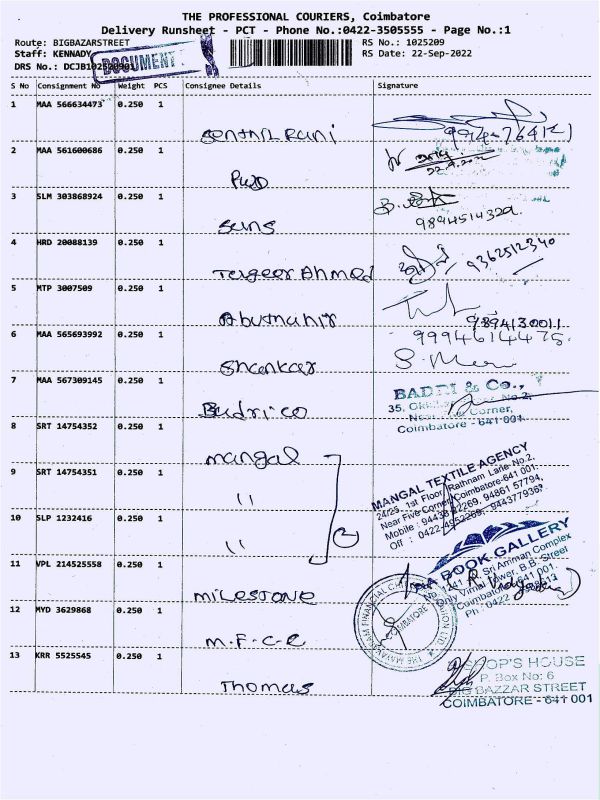 THE PROFESSIONAL COURIERS, Coimbatore
Delivery Runsheet - PCT - Phone No.:0422-3505555 - Page No.:1
Route: BIGBAZARSTREET RS No.: 1025209
Staff: KENNADY RS Date: 22-Sep-2022
DOCUMENT
DRS No.:
S No Consignment No Weight PCS Consignee Details Signature
1 MAA 566634473 0.250 1
Senthil Rani
2 MAA 561600686 0.250 1
22.9.2022
PWD
3 SLM 303868924 0.250 1
Suns
4 HRD 20088139 0.250 1
9362512340
Ahmed
5 MTP 3007509 0.250 1
Abuthahir 9894130011
6 MAA 565693992 0.250 1 9994614475.
Shankar
7 MAA 567309145 0.250 1
BADRI & Co.,
Badri co
35, No.2,
Near Five Corner,
Coimbatore - 641 001
8 SRT 14754352 0.250 1
mangal
9 SRT 14754351 0.250 1
"
MANGAL TEXTILE AGENCY
24/25, 1st Floor, Rathnam Lane No.2,
Near Five Corner, Coimbatore-641 001.
Mobile : 94438 22269, 94861 57794,
Off : 0422-
10 SLP 1232416 0.250 1
"
BOOK GALLERY
Sri Amman Complex
Vimal Tower, B.B. Street
Coimbatore-641 001.
Ph : 0422
11 VPL 214525558 0.250 1
MILESTONE
12 MYD 3629868 0.250 1
M.F.C.C
COIMBATORE
13 KRR 5525545 0.250 1
Thomas
BISHOP'S HOUSE
P. Box No: 6
BIG BAZZAR STREET
COIMBATORE - 641 001